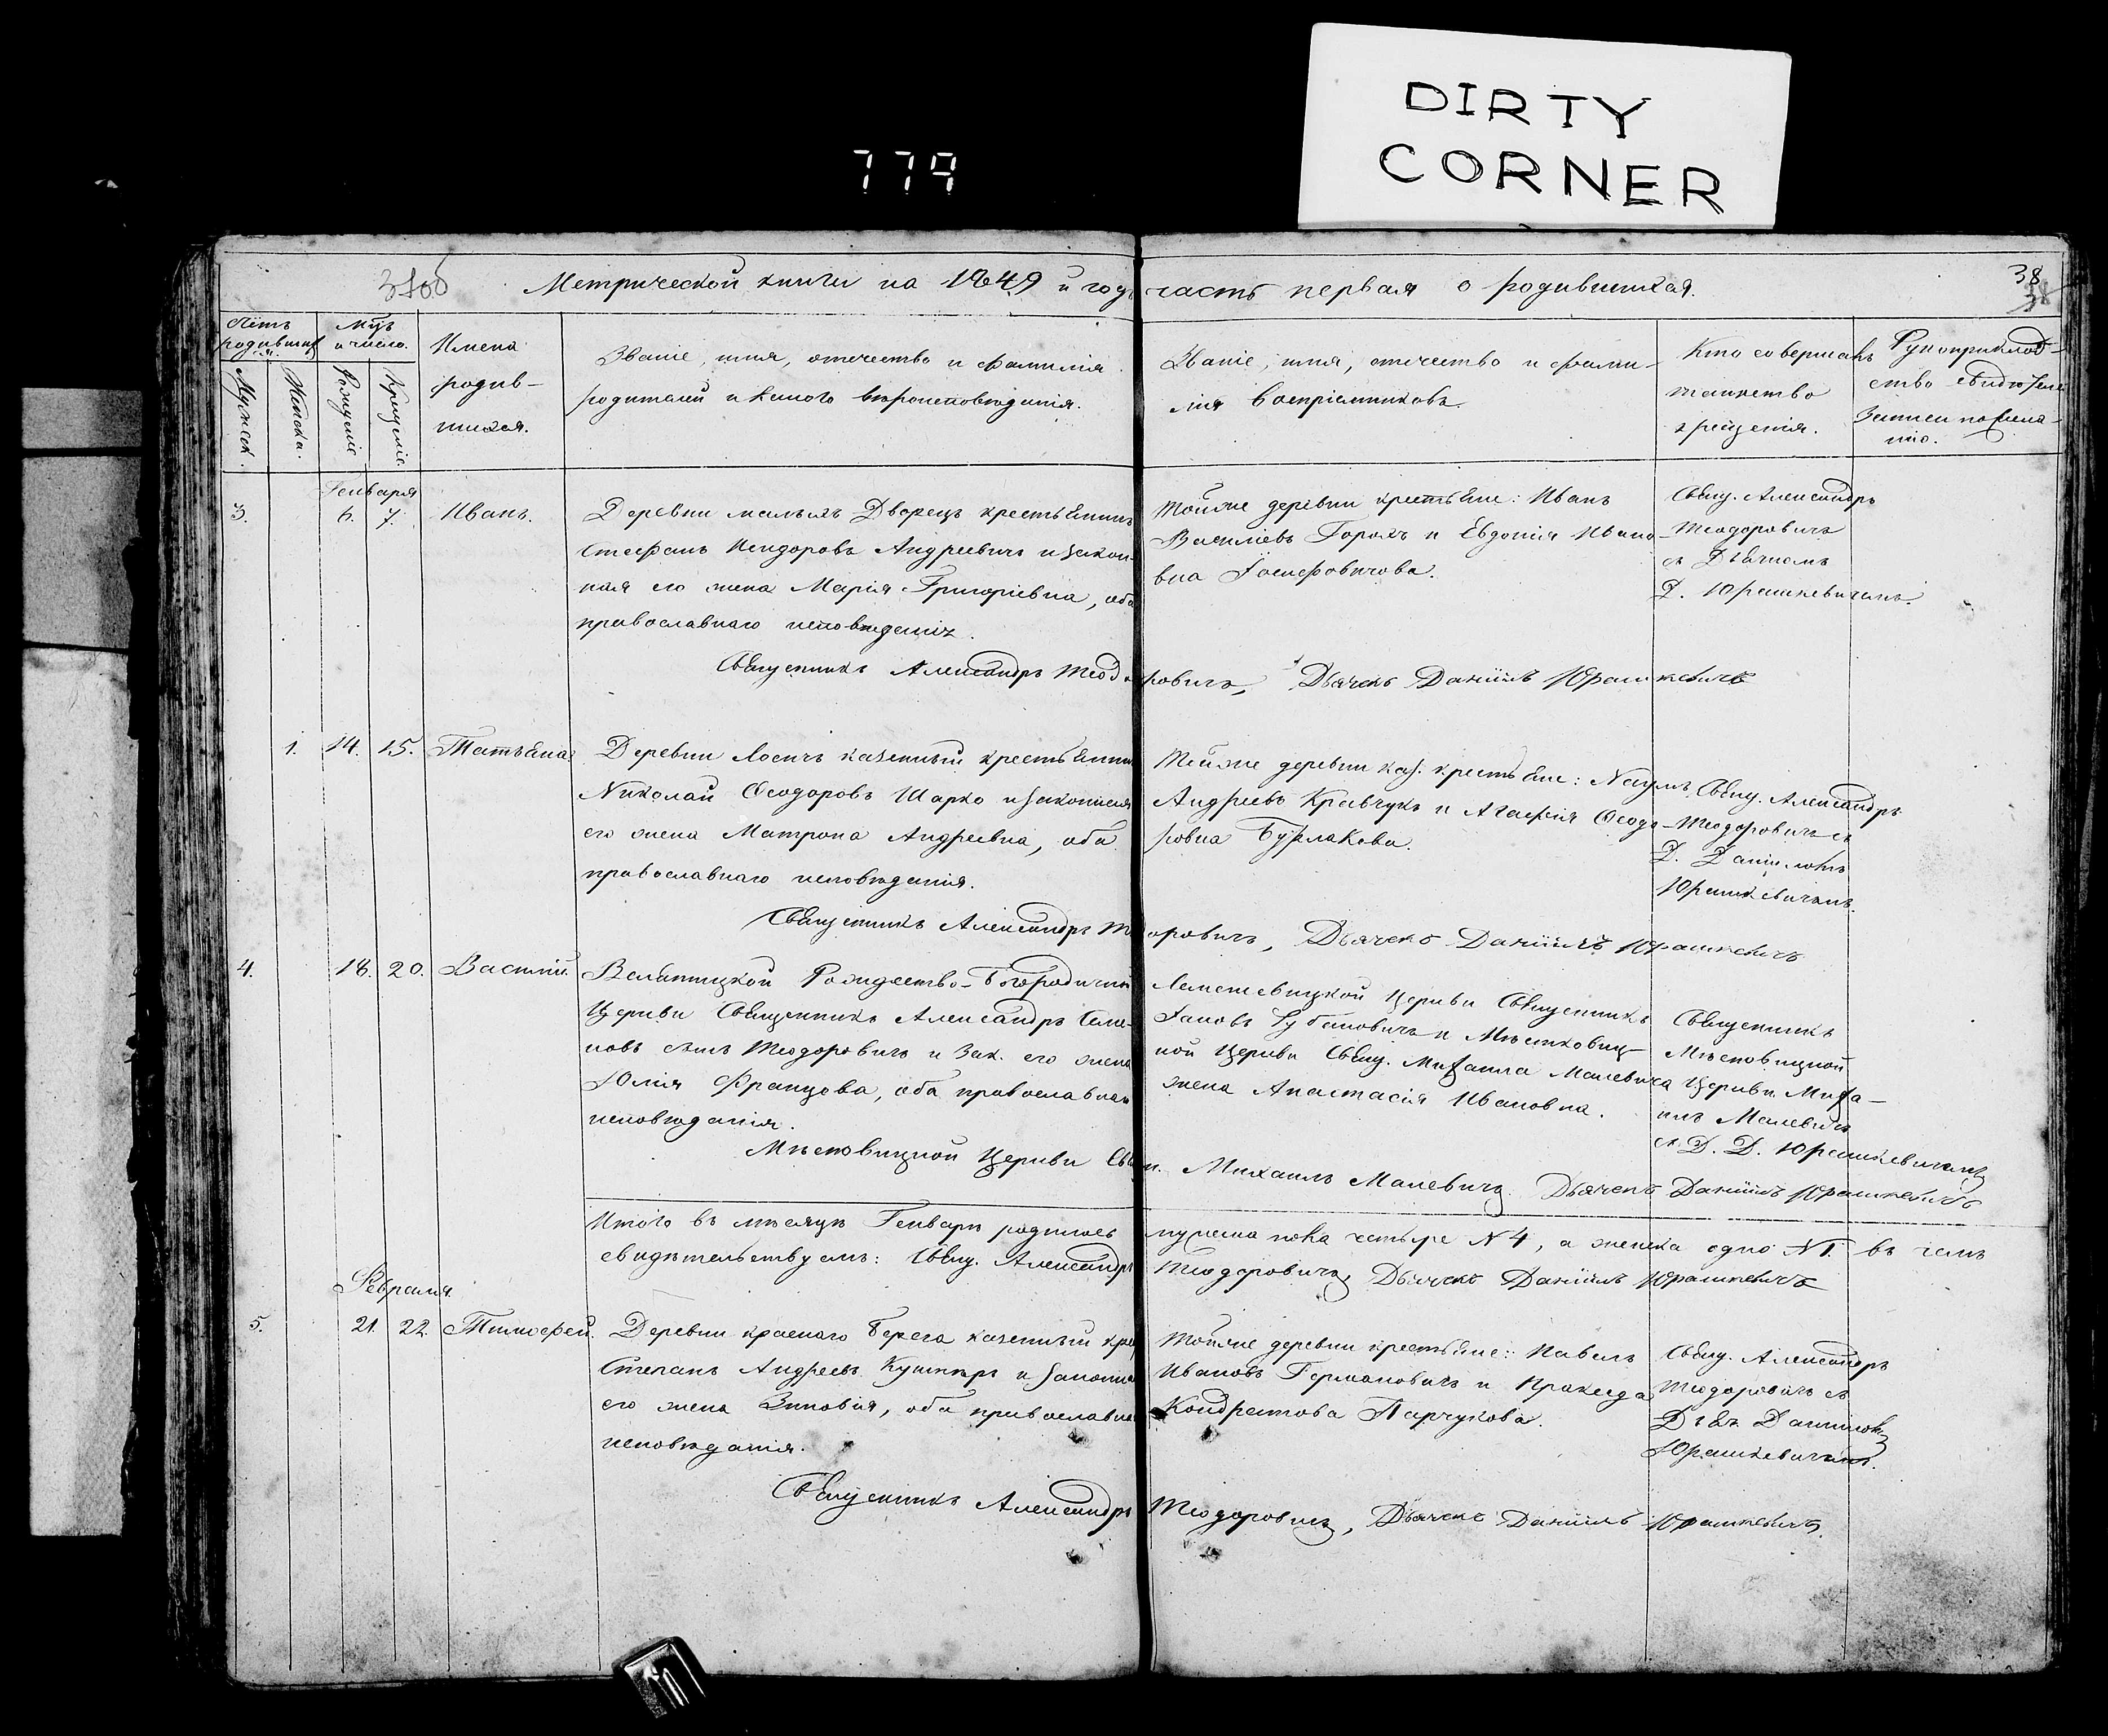 DIRTY
CORNER
779
Метрической книги на 1849 й годъ часть первая о родившихся.
38
Имена
родив-
шихся.
Званіе, имя, отечество и фамилія
родителей и какого вѣроисповѣданія.
Званіе, имя, отчество и фами-
лія Воспріемниковъ.
Кто совершалъ
таинство
крещенія.
Рукоприклад-
ство свидѣтеле
записи по жела-
нію.
Мужеск.
Женска.
Рожденіе
Крещеніе
Генваря
3.
6.
7.
Иванъ.
Деревни малыхъ Дворецъ крестьянинъ
Стефанъ Исидоровъ Андреевичъ и закон-
ная его жена Марія Григоріевна, оба
православнаго исповѣданія.
Тойже деревни крестьяне: Иванъ
Василіевъ Горохъ и Евдокія Ивано-
вна Іосифовичова.
Свящ. Александръ
Теодоровичъ
съ Дьячкомъ
Д. Юрашкевичемъ.
Священникъ Александръ Теодоровичъ, Дьячекъ Даніилъ Юрашкевичъ
1.
14.
15.
Татьяна
Деревни Лосичъ казенный крестьянинъ
Николай Ѳеодоровъ Шарко и законная
его жена Матрона Андреевна, оба
православнаго исповѣданія.
Тойже деревни каз. крестьяне: Наумъ
Андреевъ Кравчукъ и Агафія Ѳеодо-
ровна Бурлакова.
Свящ. Александръ
Теодоровичъ съ
Д. Даніиломъ
Юрашкевичемъ.
Священникъ Александръ Теодоровичъ, Дьячекъ Даніилъ Юрашкевичъ
4.
18.
20.
Василій.
Рождество-Богородичной
Церкви Священникъ Александръ Семе-
новъ сынъ Теодоровичъ и Зак. его жена
Юлія Францова, оба православнаго
исповѣданія.
Лемешевицкой Церкви Священникъ
и Мѣстковиц-
ной Церкви Свящ. Михаила Малевича
жена Анастасія Ивановна.
Священникъ
Мѣстковицкой
Церкви Миха-
илъ Малевичъ
съ Д. Д. Юрашкевичемъ
Мѣстковицкой Церкви Свящ. Михаилъ Малевичъ. Дьячекъ Даніилъ Юрашкевичъ
Итого въ мѣсяцѣ Генварѣ родилось мужеска пола четыре N 4, а женска одно N 1. въ чемъ
свидѣтельствуемъ: Свящ. Александръ Теодоровичъ, Дьячекъ Даніилъ Юрашкевичъ
Февраля.
5.
21.
22.
Тимофей.
Деревни краснаго Берега казенный крес
Степанъ Андреевъ Кушнѣръ и законная
его жена Зиновія, оба православна
исповѣданія.
Тойже деревни крестьяне: Павелъ
Ивановъ Германовичъ и Пракседа
Кондратова Парчукова.
Свящ. Александръ
Теодоровичъ съ
Дьяч. Даниломъ
Юрашкевичемъ.
Священникъ Александръ Теодоровичъ, Дьячекъ Даніилъ Юрашкевичъ.